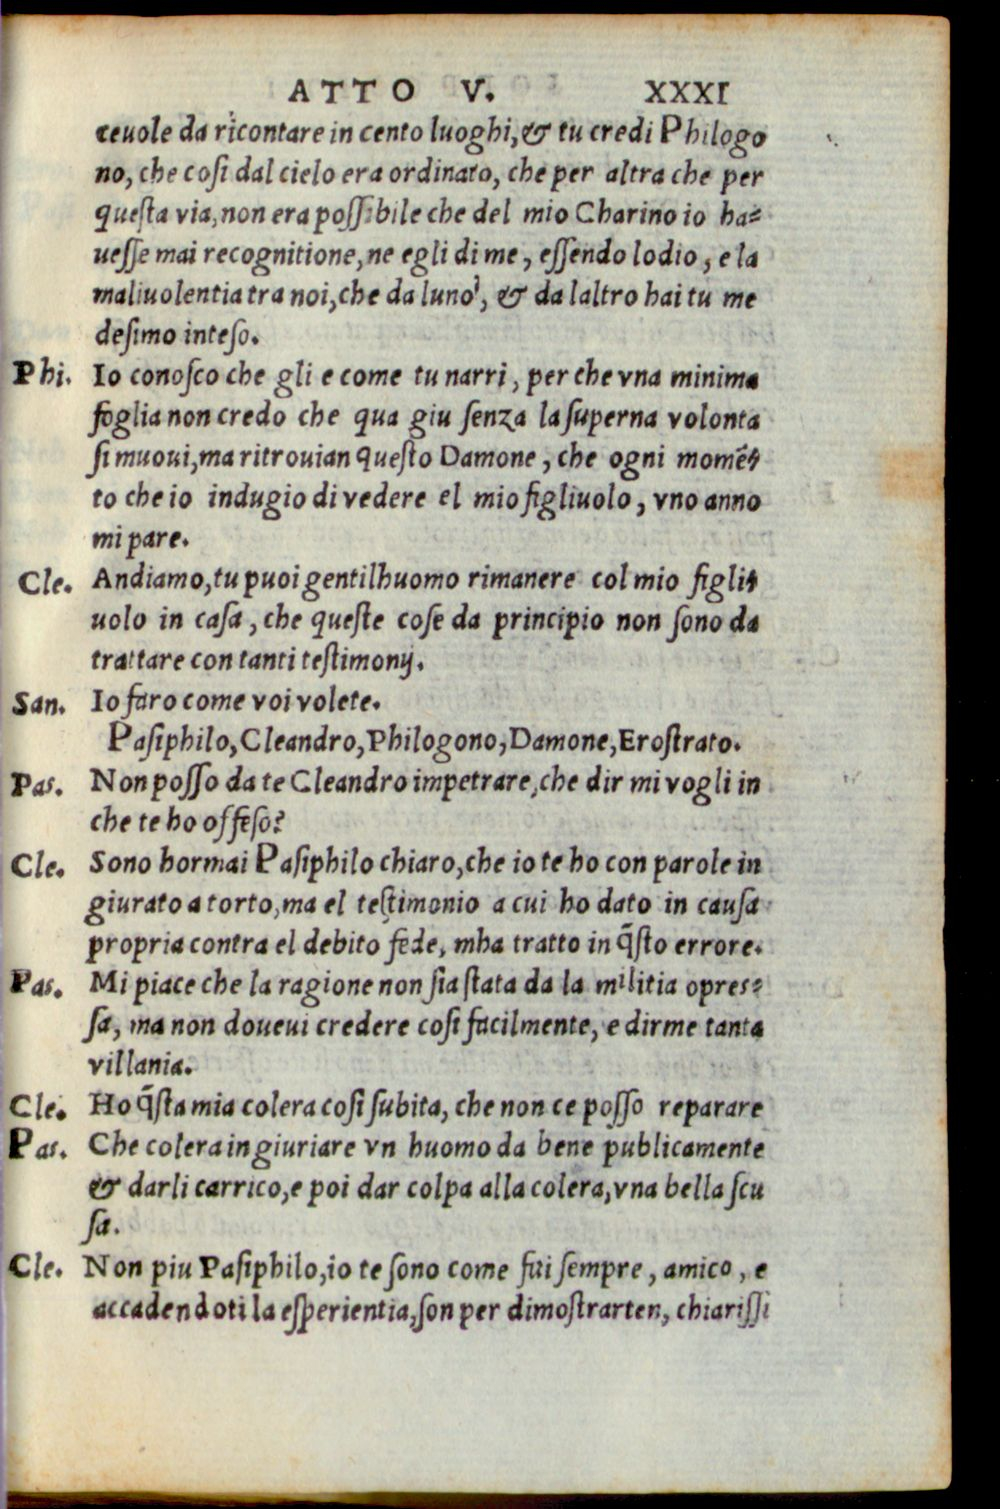 ATTO V. XXXI
ceuole da ricontare in cento luoghi, & tu credi Philogo
no, che cosi dal cielo era ordinato, che per altra che per
questa via, non era possibile che del mio Charino io ha=
uesse mai recognitione, ne egli di me, essendo lodio, e la
maliuolentia tra noi, che da luno, & da laltro hai tu me
desimo inteso.
Phi. Io conosco che gli e come tu narri, per che vna minima
foglia non credo che qua giu senza la superna volonta
si muoui, ma ritrouian questo Damone, che ogni momē=
to che io indugio di vedere el mio figliuolo, vno anno
mi pare.
Cle. Andiamo, tu puoi gentilhuomo rimanere col mio figli=
uolo in casa, che queste cose da principio non sono da
trattare con tanti testimonij.
San. Io faro come voi volete.
Pasiphilo, Cleandro, Philogono, Damone, Erostrato.
Pas. Non posso da te Cleandro impetrare, che dir mi vogli in
che te ho offeso?
Cle. Sono hormai Pasiphilo chiaro, che io te ho con parole in
giurato a torto, ma el testimonio a cui ho dato in causa
propria contra el debito fede, mha tratto in q̄sto errore.
Pas. Mi piace che la ragione non sia stata da la militia opres=
sa, ma non doueui credere cosi facilmente, e dirme tanta
villania.
Cle. Ho q̄sta mia colera cosi subita, che non ce posso reparare
Pas. Che colera ingiuriare vn huomo da bene publicamente
& darli carrico, e poi dar colpa alla colera, vna bella scu
sa.
Cle. Non piu Pasiphilo, io te sono come fui sempre, amico, e
accadendoti la esperientia, son per dimostrarten, chiarissi